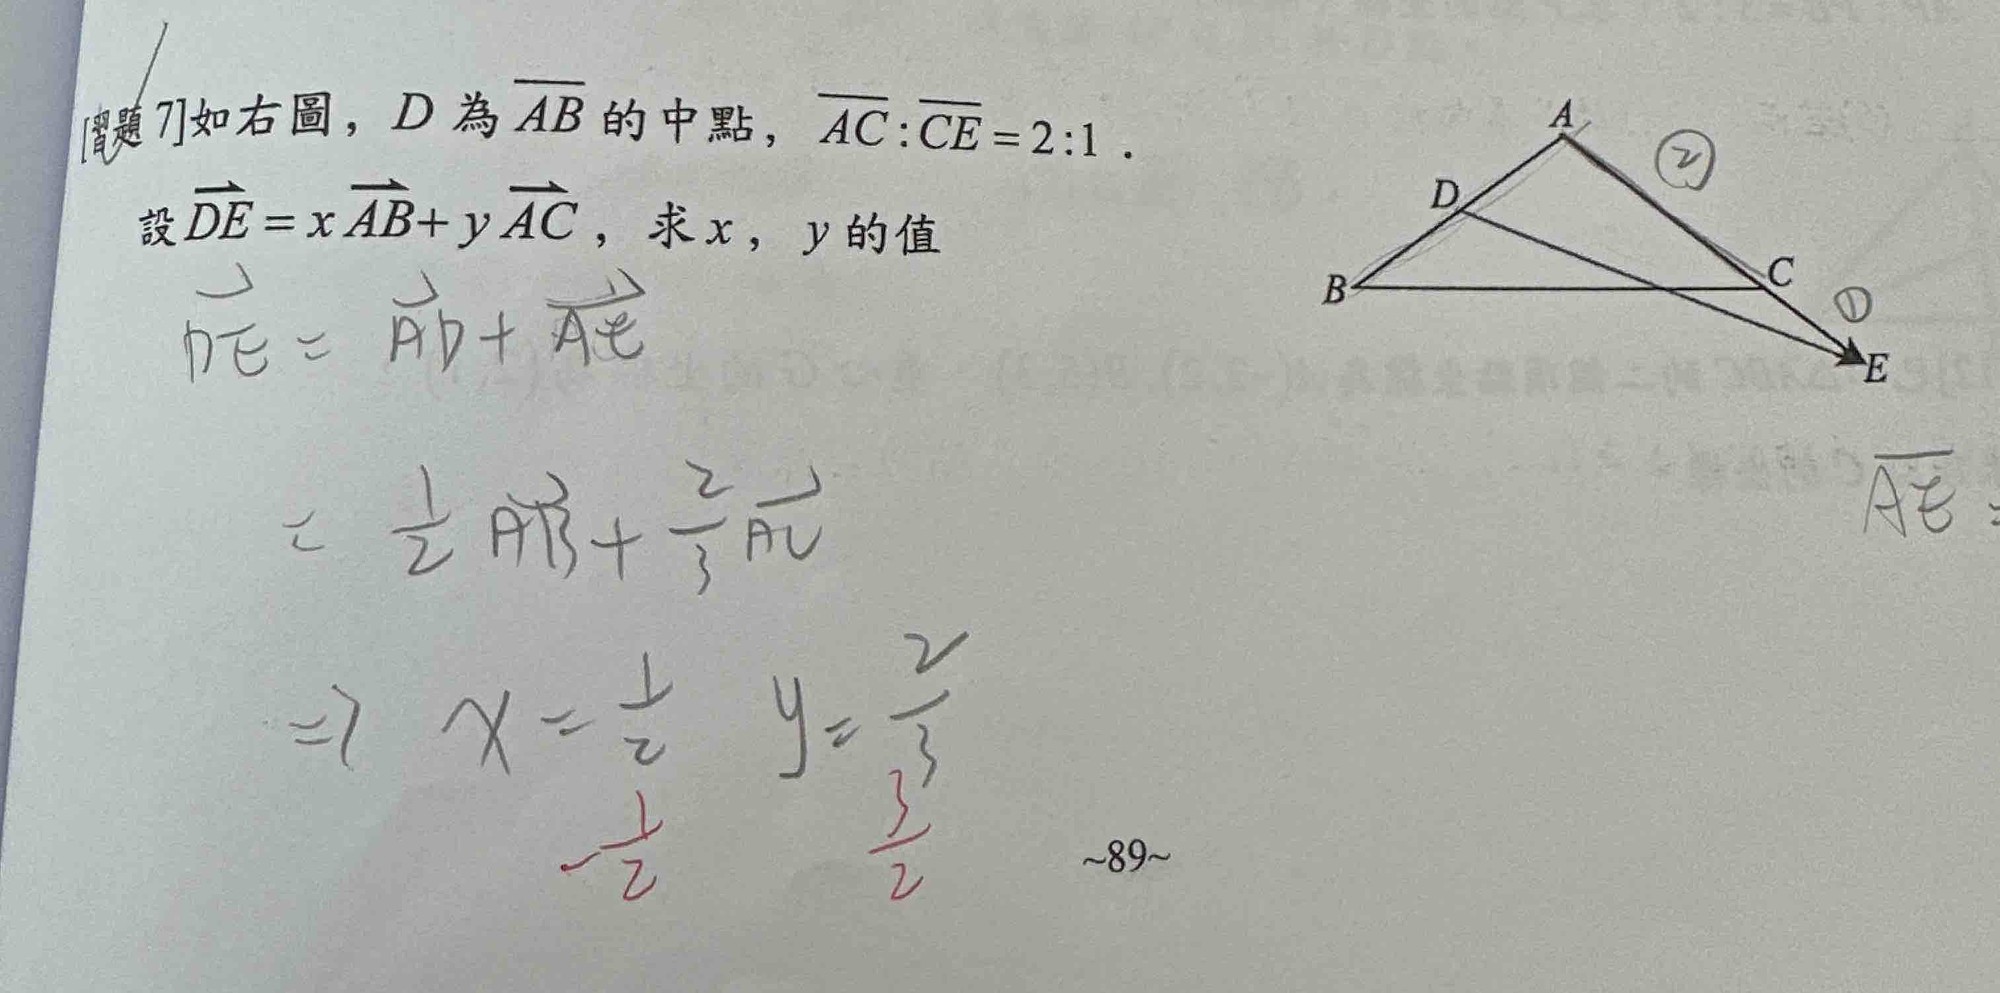 [習題 7]如右圖，D 為 AB 的中點，AC:CE=2:1．
設DE=xAB+yAC，求x，y的值
A
②
D
B
C
①
E
DE = AD + AE
AE =
= 1/2 AB + 2/3 AC
⇒ x = 1/2 y = 2/3
-1/2 3/2
~89~